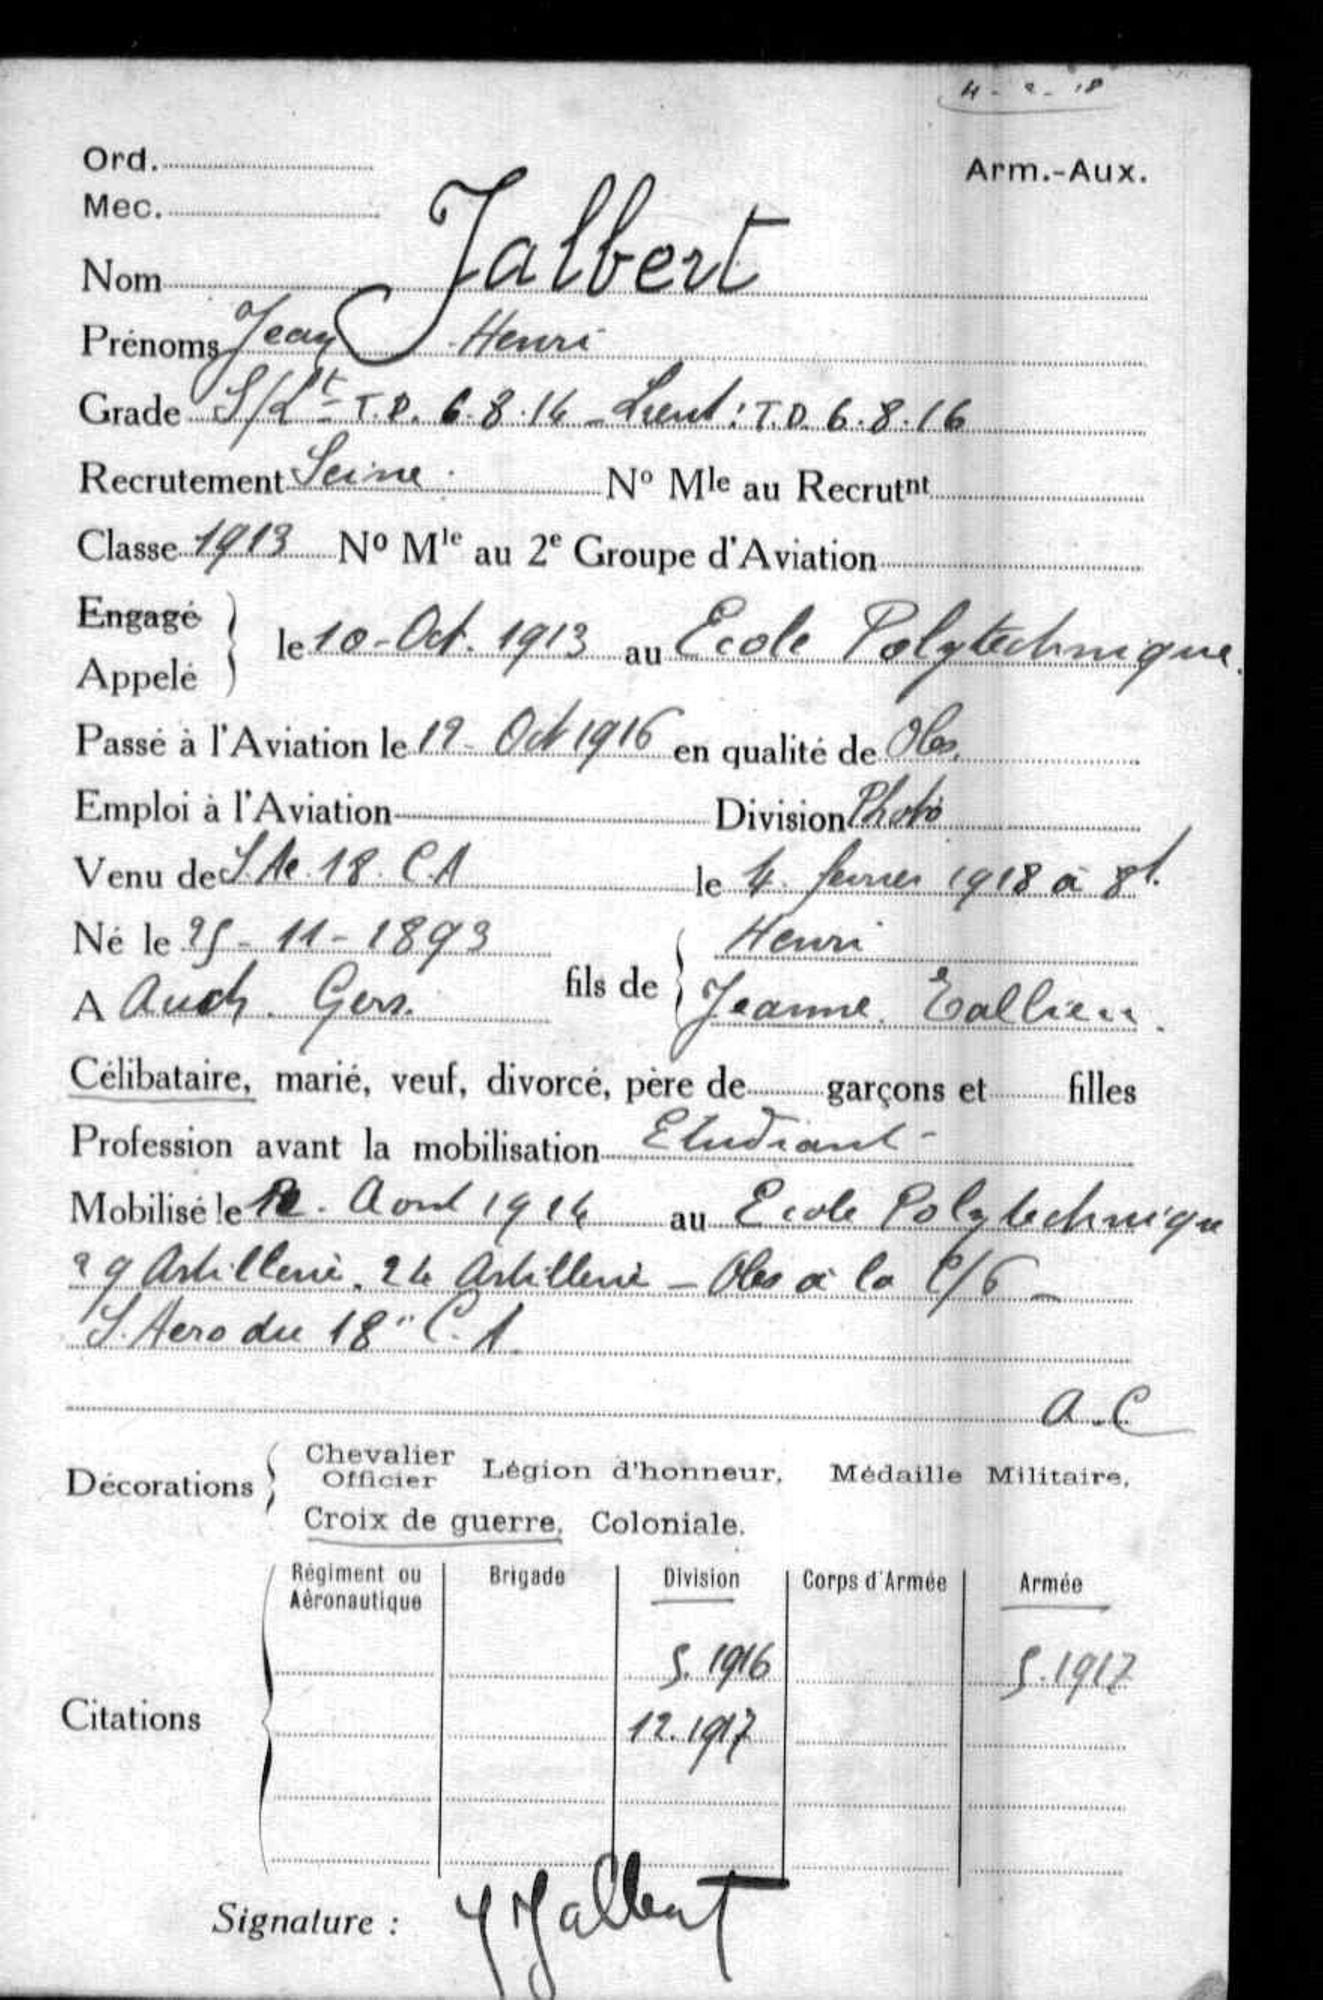 4-2-18
Ord.
Arm.-Aux.
Mec.
Nom Jalbert
Prénoms Jean Henri
Grade S/Lt T.P. 6.8.14 - Lieut: T.D. 6.8.16
Recrutement Seine. No Mle au Recrutnt
Classe 1913 No Mle au 2e Groupe d'Aviation
Engagé
Appelé
le 10-Oct. 1913 au Ecole Polytechnique.
Passé à l'Aviation le 12- Oct 1916 en qualité de Obs.
Emploi à l'Aviation Division Photo
Venu de S.Ae. 18. C.A le 4. fevrier 1918 à
Né le 25-11-1893
A Auch. Gers.
fils de
Henri
Jeanne.
Célibataire, marié, veuf, divorcé, père de garçons et filles
Profession avant la mobilisation Etudiant-
Mobilisé le Aout 1914 au Ecole Polytechniqu
29 Artillerie. 24 Artillerie - Obs à la C/6 -
S. Aero du 18" C.A.
A.C
Décorations
Chevalier
Officier
Légion d'honneur, Médaille Militaire,
Croix de guerre, Coloniale.
Régiment ou Aéronautique Brigade Division Corps d'Armée Armée
5.1916 5.1917
Citations
12.1917
Signature : J Jalbert